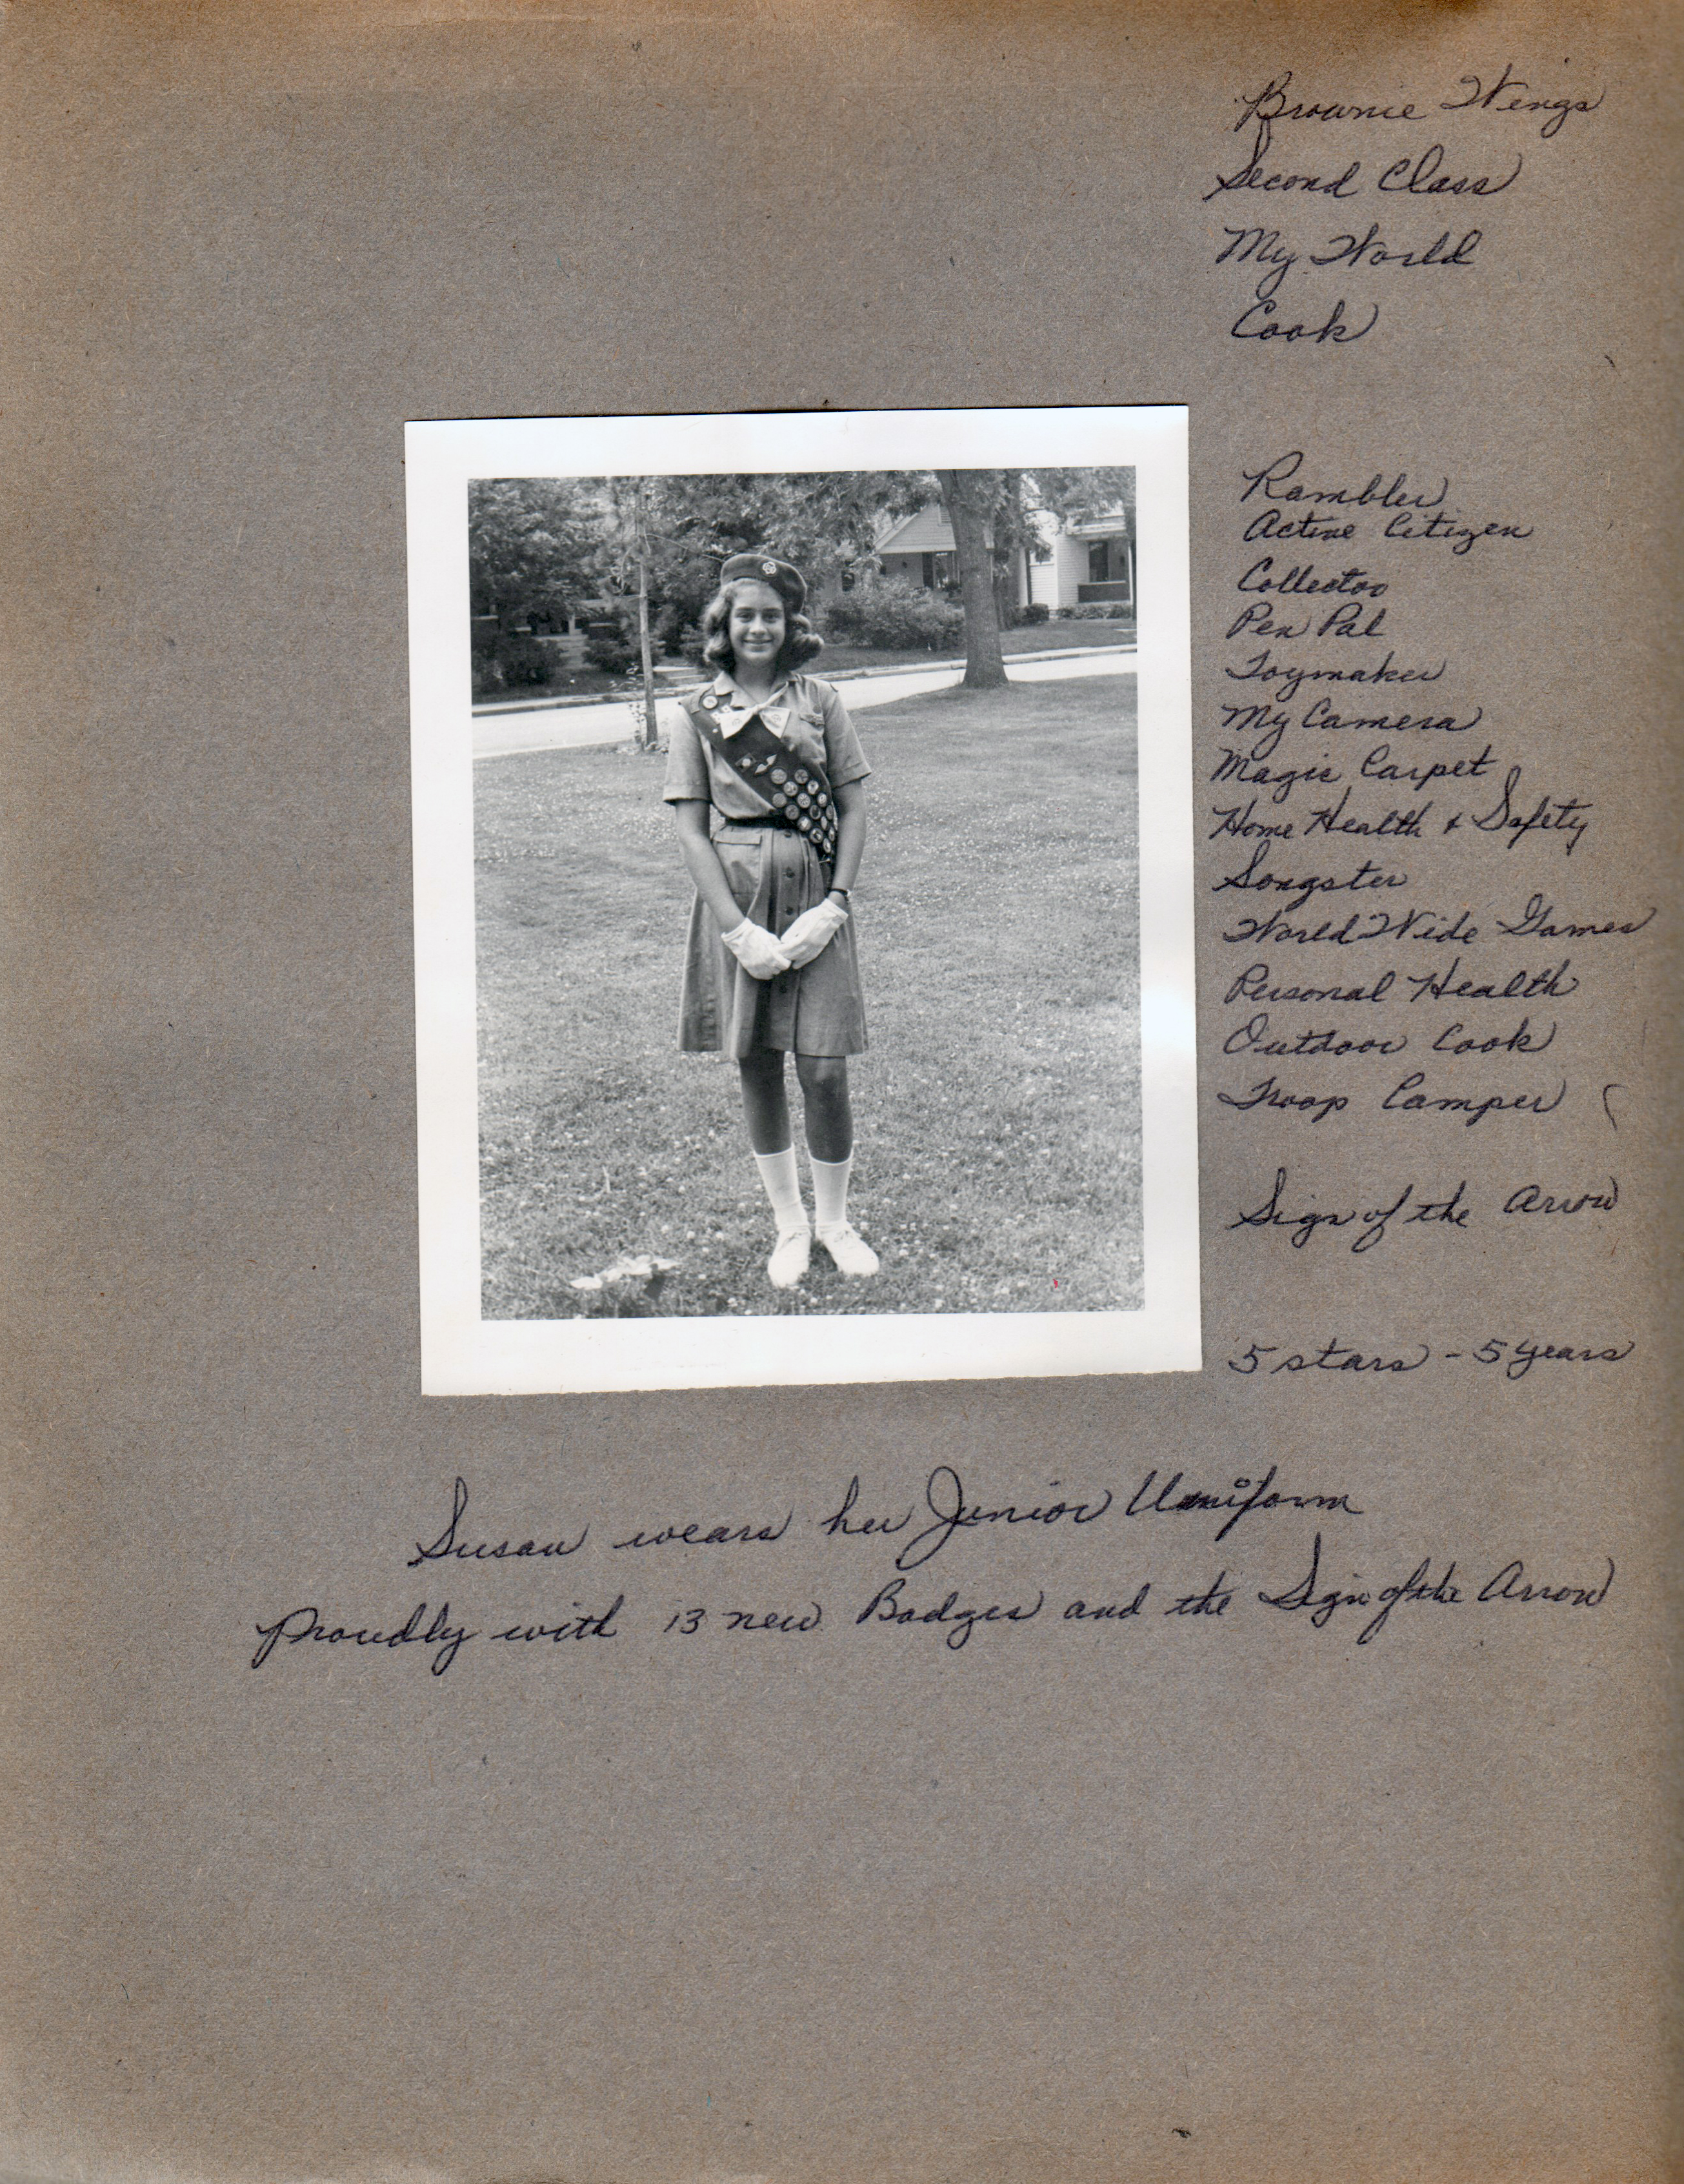 Brownie Wings
Second Class
My World
Cook
Rambler
Active Citizen
Collector
Pen Pal
Toymaker
My Camera
Magic Carpet
Home Health + Safety
Songster
World Wide Games
Personal Health
Outdoor Cook
Troop Camper
Sign of the Arrow
5 stars - 5 years
Susan wears her Junior Uniform
proudly with 13 new Badges and the Sign of the Arrow